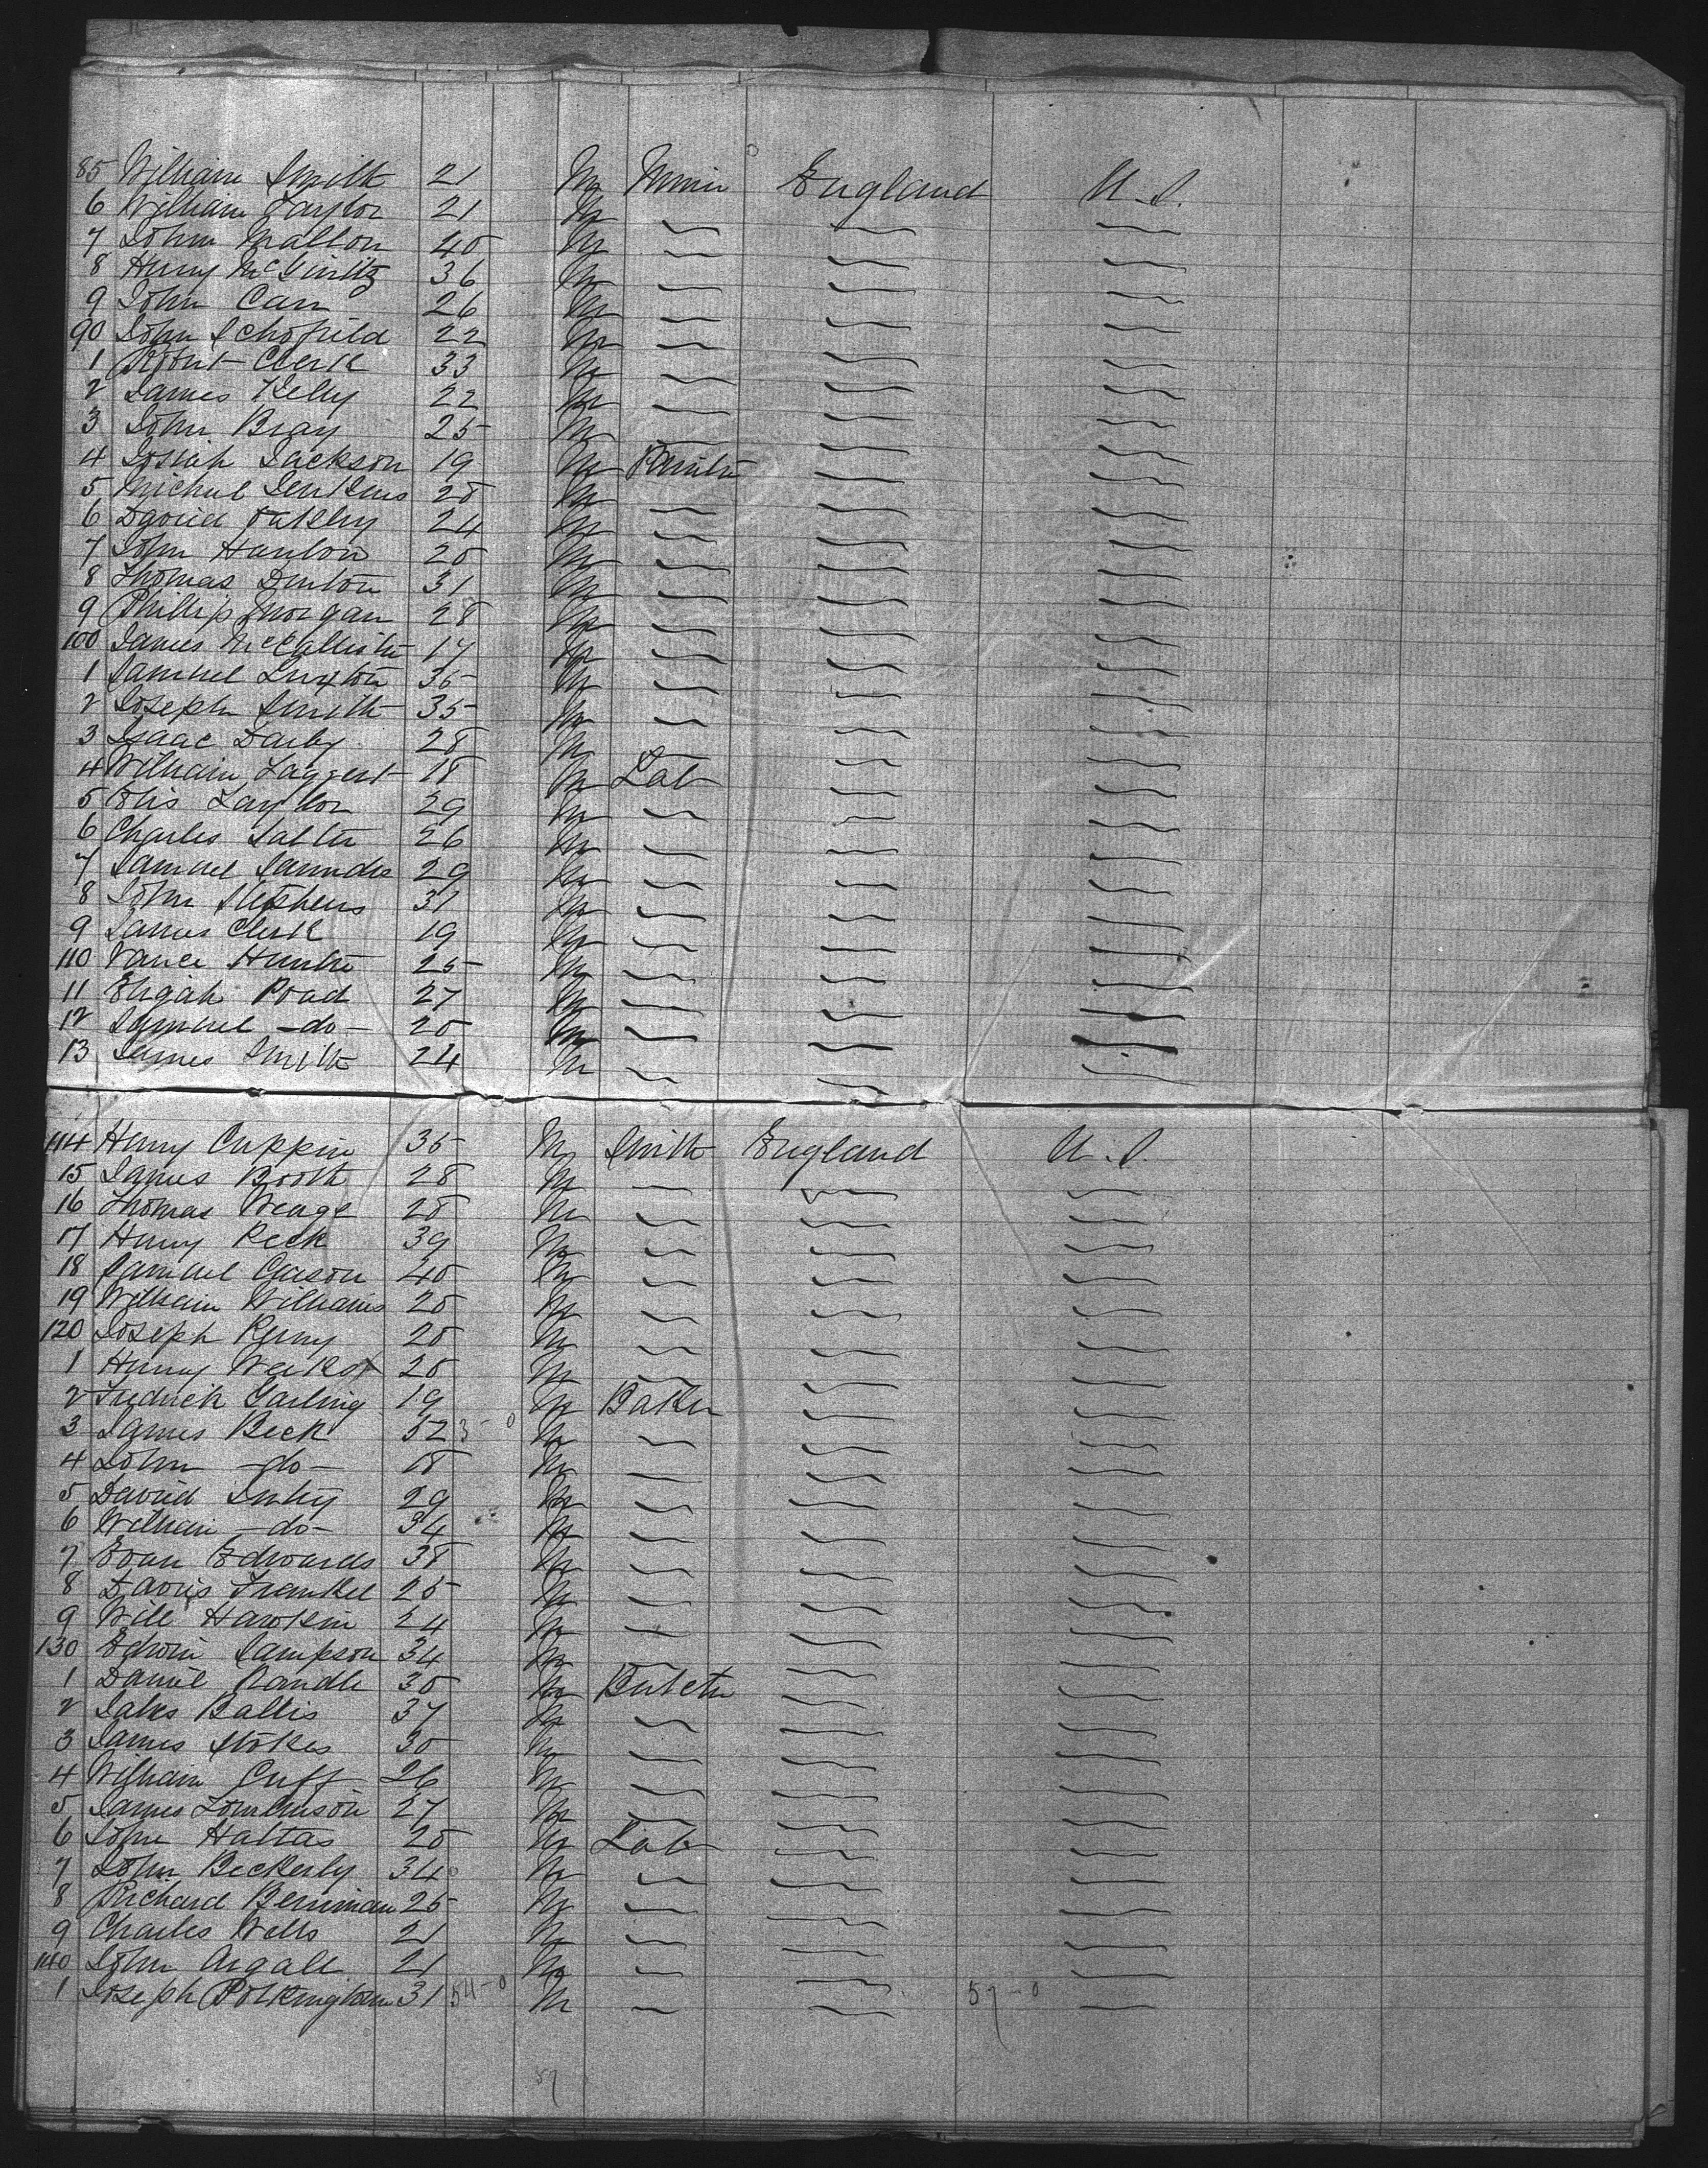 85 William Smith 21 M Miner England U.S.
6 William Taylor 21 M
7 John Mallon 40 M
8 Henry 36 M
9 John Carr 26 M
90 John Schofield 22 M
1 Robert Clerk 33 M
2 James Kelly 22 M
3 John Bray 25 M
4 Josiah Jackson 19 M Painter
5 Michael Jenkens 28 M
6 David Oakley 24 M
7 John Hanlon 20 M
8 Thomas Denton 31 M
9 Phillip Morgan 28 M
100 James McCallister 17 M
1 Samuel Luxton 35 M
2 Joseph Smith 35 M
3 Isaac Darby 28 M
4 William Taggert 18 M Lab
5 Elis Taylor 29 M
6 Charles Salter 26 M
7 Samuel Saunders 29 M
8 John Stephens 31 M
9 James Clerk 19 M
110 Vance Hunter 25 M
11 Elijah Poad 27 M
12 Samuel -do- 20 M
13 James Smith 24 M
114 Henry Cuppin 35 M Smith England U.S.
15 James Booth 28 M
16 Thomas 28 M
17 Henry Peck 39 M
18 Samuel Cason 40 M
19 William Williams 20 M
120 Joseph 28 M
1 Henry 20 M
2 Fredrick Garling 19 M Baker
3 James Beck 52 3-0 M
4 John -do- 18 M
5 David 29 M
6 William -do- 34 M
7 Evan Edwards 38 M
8 Davis Frankel 25 M
9 Will Hawkin 24 M
130 Edwin Sampson 34 M
1 Daniel Randle 30 M Butcher
2 Ballis 37 M
3 James Stokes 30 M
4 William Cuff 26 M
5 James Tomlinson 27 M
6 John Haltas 20 M Lab
7 John Beckerly 34 M
8 Richard Berriman 25 M
9 Charles Wells 21 M
140 John Argall 21 M
1 Joseph Polkinghame 31 54-0 M 57-0
57